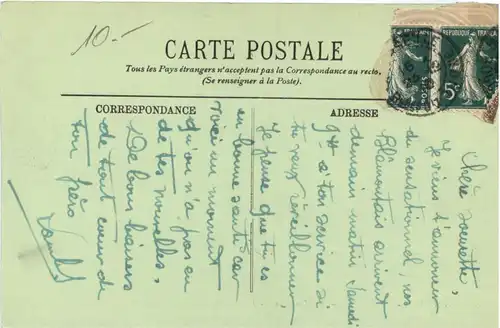 10.-
CARTE POSTALE
Tous les Pays étrangers n'acceptent pas la Correspondance au recto,
(Se renseigner à la Poste).
CORRESPONDANCE
ADRESSE
REPUBLIQUE FRANÇAISE
5c
Chère
Je viens t'annoncer
du sensationnel, nos
Blamontais arrivent
demain matin Samedi
à ton service si
tu veux réveillonner
Je pense que tu es
en bonne santé car
voici un moment
qu'on n'a pas eu
de tes nouvelles,
De bons baisers
de tout coeur de
ton frère